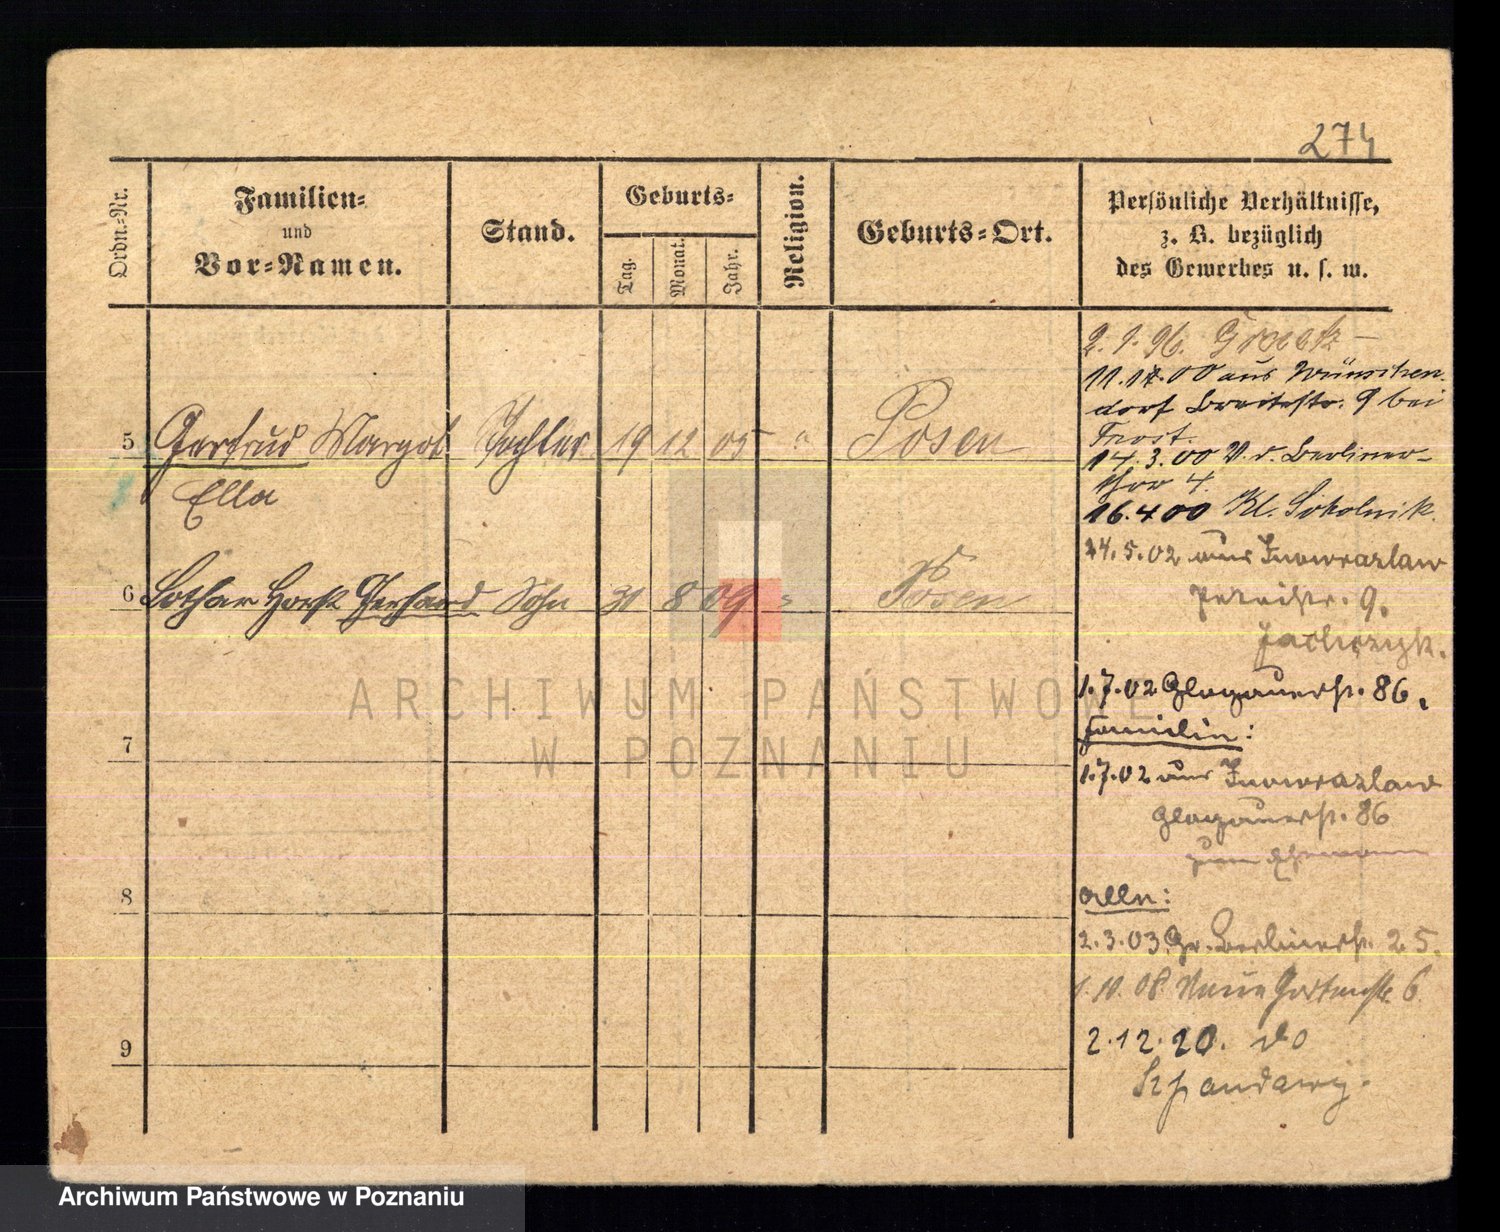 274
Ordn.-Nr.
Familien-
und
Vor-Namen.
Stand.
Geburts-
Tag.
Monat.
Jahr.
Religion.
Geburts-Ort.
Persönliche Verhältnisse,
z. B. bezüglich
des Gewerbes u. s. w.
5 Gertrud Margot Tochter 19 12 05 " Posen
Ella
6 Lothar Horst Gerhard Sohn 31 8 09 " Posen
7
8
9
2. 1. 96. Graetz
11.17.00 aus Wünschen-
dorf Breitestr. 9 bei
Frost.
14.3.00 V. d. Berliner-
thor 4.
16.4.00 Kl. Sokolnik.
24.5.02 aus Inowrazlaw
Petristr. 9.
1.7.02 Glogauerstr. 86.
Familie:
1.7.02 aus Inowrazlaw
Glogauerstr. 86
zum Ehemann
Alle:
2.3.03 Gr. Berlinerstr. 25.
1.10.08 Neue Gartenstr. 6.
2.12.20. do
ARCHIWUM PAŃSTWOWE
W POZNANIU
Archiwum Państwowe w Poznaniu